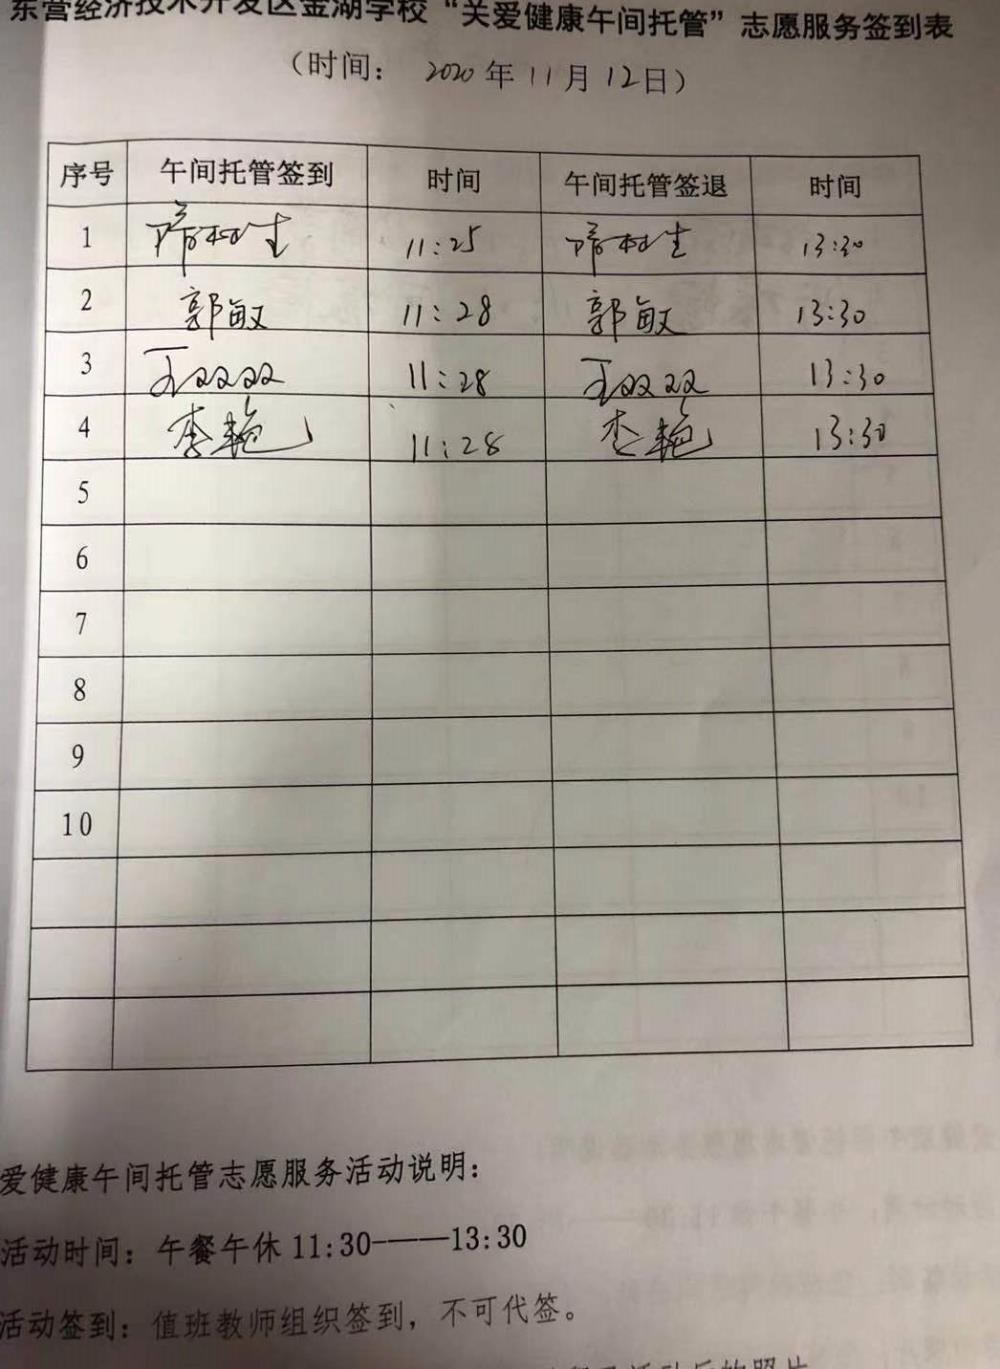 东营经济技术开发区金湖学校“关爱健康午间托管”志愿服务签到表
（时间： 2020年11月12日）
序号 午间托管签到 时间 午间托管签退 时间
1 11:25 13:30
2 郭敏 11:28 郭敏 13:30
3 王双双 11:28 王双双 13:30
4 李艳 11:28 李艳 13:30
5
6
7
8
9
10
爱健康午间托管志愿服务活动说明：
活动时间：午餐午休11:30-——13:30
活动签到：值班教师组织签到，不可代签。